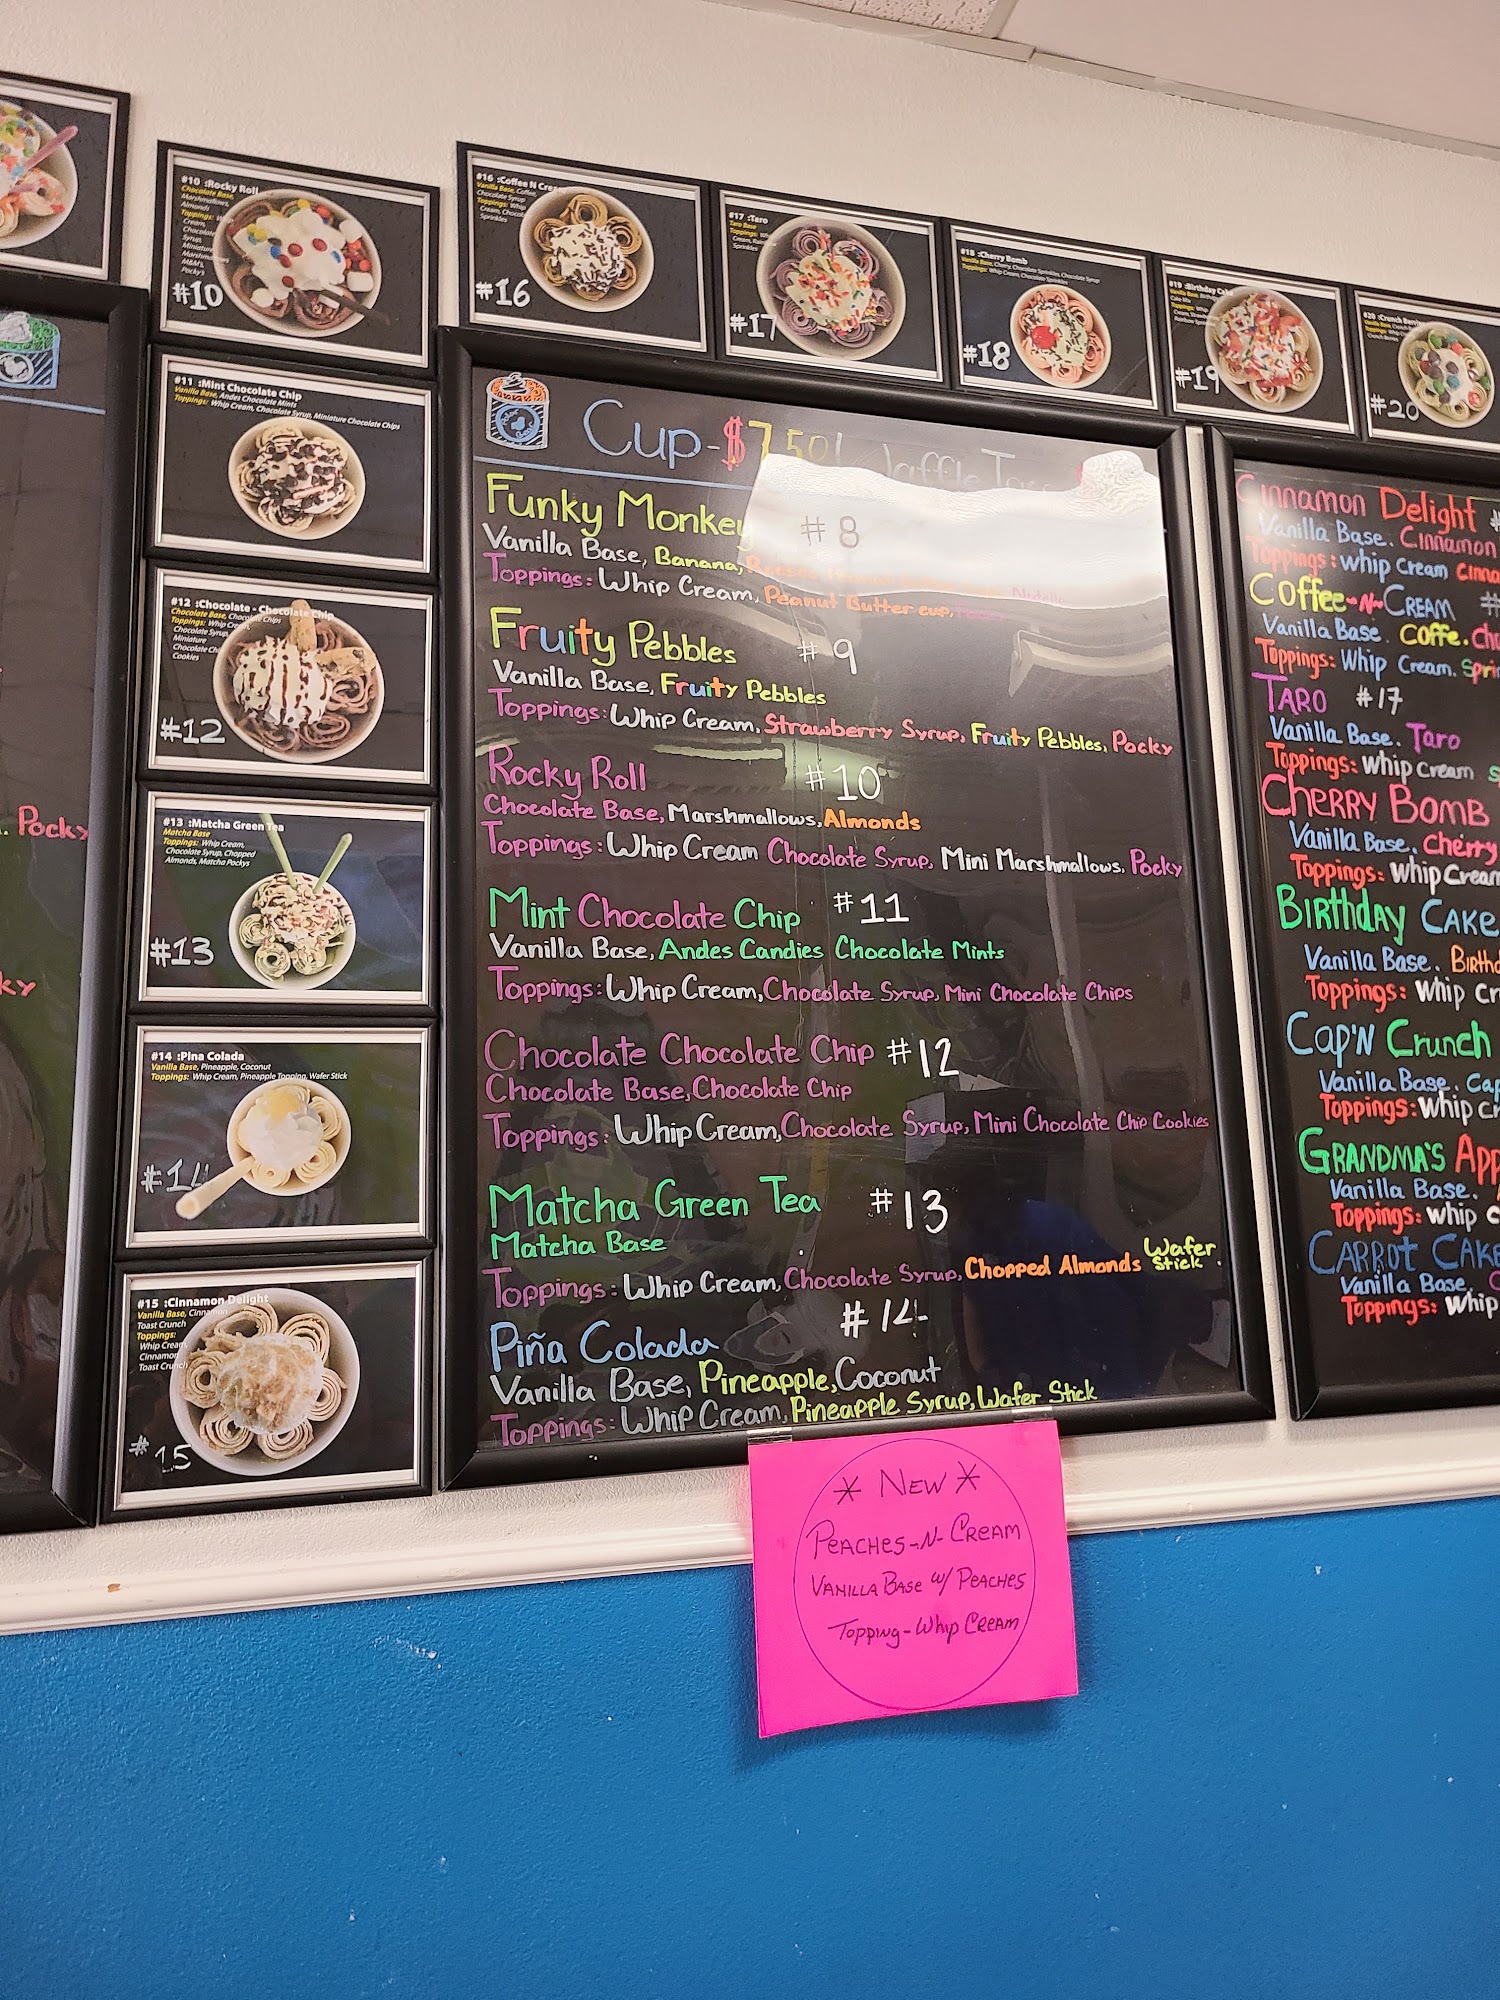 Pocky
ky
#10 :Rocky Roll
Chocolate Base,
Marshmallows,
Almonds
Toppings:
Cream,
Syrup
Miniature
M&M's,
Pocky's
#10
#11 :Mint Chocolate Chip
Vanilla Base, Andes Chocolate Mints
Toppings: Whip Cream, Chocolate Syrup, Miniature Chocolate Chips
#12 :Chocolate - Chocolate Chip
Chocolate Base, Chocolate Chips
Toppings: Whip Cream,
Chocolate Syrup,
Miniature
Chocolate Chip
Cookies
#12
#13 :Matcha Green Tea
Matcha Base
Toppings: Whip Cream,
Chocolate Syrup, Chopped
Almonds, Matcha Pockys
#13
#14 :Pina Colada
Vanilla Base, Pineapple, Coconut
Toppings: Whip Cream, Pineapple Topping, Wafer Stick
#14
#15 :Cinnamon Delight
Vanilla Base, Cinnamon
Toast Crunch
Toppings:
Whip Cream,
Cinnamon
Toast Crunch
#15
#16 :Coffee N Cream
Vanilla Base, Coffee,
Chocolate Syrup
Toppings: Whip
Cream, Chocolate
Sprinkles
#16
#17 :Taro
Taro Base
Toppings: Whip
Cream,
Sprinkles
#17
#18 :Cherry Bomb
Vanilla Base, Cherry, Chocolate Sprinkles, Chocolate Syrup
Toppings: Whip Cream, Chocolate Sprinkles
#18
#19 :Birthday Cake
Vanilla Base,
Cake Mix
Toppings:
#19
#20 :Crunch Berries
Vanilla Base,
Crunch Berries
#20
Cup-$7.50! Waffle
Funky Monkey #8
Vanilla Base, Banana,
Toppings: Whip Cream, Peanut Butter cup, Nutella
Fruity Pebbles #9
Vanilla Base, Fruity Pebbles
Toppings: Whip Cream, Strawberry Syrup, Fruity Pebbles, Pocky
Rocky Roll #10
Chocolate Base, Marshmallows, Almonds
Toppings: Whip Cream Chocolate Syrup, Mini Marshmallows, Pocky
Mint Chocolate Chip #11
Vanilla Base, Andes Candies Chocolate Mints
Toppings: Whip Cream, Chocolate Syrup, Mini Chocolate Chips
Chocolate Chocolate Chip #12
Chocolate Base, Chocolate Chip
Toppings: Whip Cream, Chocolate Syrup, Mini Chocolate Chip Cookies
Matcha Green Tea #13
Matcha Base
Toppings: Whip Cream, Chocolate Syrup, Chopped Almonds Wafer Stick.
Piña Colada #14
Vanilla Base, Pineapple, Coconut
Toppings: Whip Cream, Pineapple Syrup, Wafer Stick
* New *
Peaches-N-Cream
Vanilla Base w/ Peaches
Topping - Whip Cream
Cinnamon Delight #
Vanilla Base. Cinnamon
Toppings: Whip Cream Cinna
Coffee-N-Cream #
Vanilla Base. Coffe. Cho
Toppings: Whip Cream. Spri
Taro #17
Vanilla Base. Taro
Toppings: Whip Cream S
Cherry Bomb
Vanilla Base. Cherry
Toppings: Whip Cream
Birthday Cake
Vanilla Base. Birthd
Toppings: Whip Cr
Cap'N Crunch
Vanilla Base. Cap
Toppings: Whip Cr
Grandma's App
Vanilla Base.
Toppings: Whip C
Carrot Cake
Vanilla Base. C
Toppings: Whip